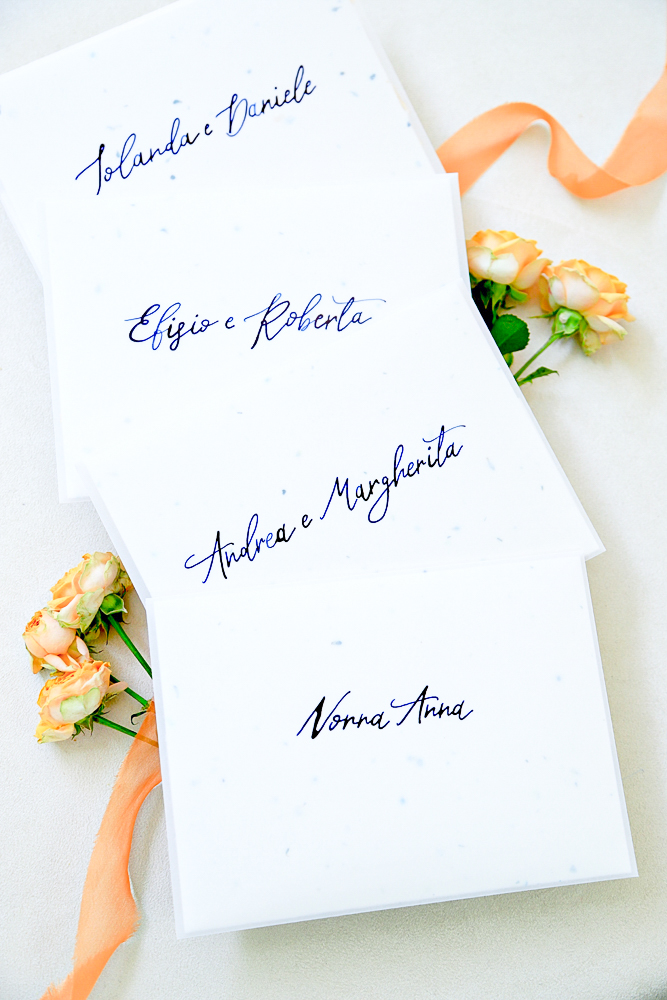 Iolanda e Daniele
Efisio e Roberta
Andrea e Margherita
Nonna Anna